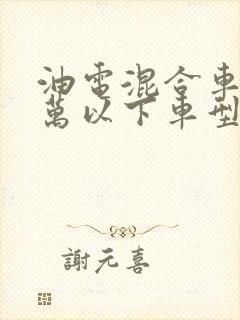 油電混合車
萬以下車型
謝元喜